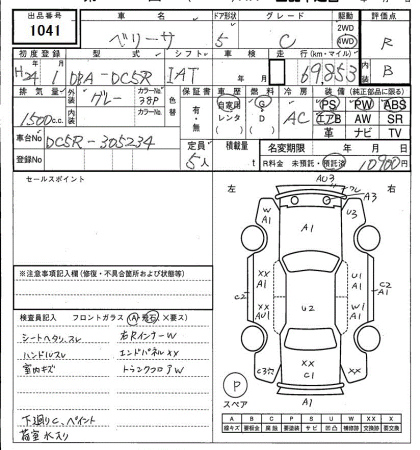 出品番号 車名 ドア形状 グレード 駆動 評価点
1041 ベリーサ 5 C 2WD 4WD R
初度登録 型式 シフト 車検 走行(km・マイル) 内装
H24 1 DBA-DC5R IAT 年 月 69853 B
排気量 外装 カラーNo 色替 保証書 車歴 燃料 冷房 装備(純正部品に限る)
1500c.c. グレー 38P 有・無 自家用 レンタ G・D AC PS PW ABS
内装 カラーNo エアB AW SR
革 ナビ TV
車台No DC5R-305234 定員 積載量 名変期限 年 月 日
登録No 5人 t R料金 未預託・預託済 10900円
セールスポイント
左 右
AU3
A3
W A1 U3
A1
XX AU1 U1 A1
C2 U2 C2
XX A1 W A1
XX C1
C3穴 XX
A1
P
スペア
※注意事項記入欄(修復・不具合箇所および状態等)
検査員記入 フロントガラス(A・飛石・X要ス)
シートヘタリ、スレ 右RインナーW
ハンドルスレ エンドパネルXX
室内キズ トランクフロアW
下廻りC、ペイント
荷室水入り
A B C P S U W X XX
線キズ 要板金 腐蝕 要塗装 サビ 凹凸 補修跡 交換跡 要交換